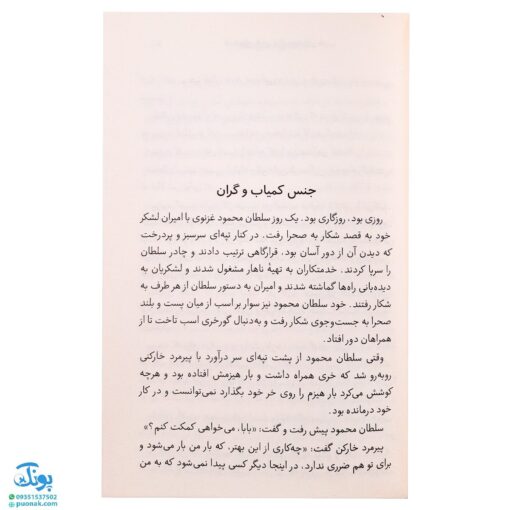 جنس کمیاب و گران
روزی بود، روزگاری بود. یک روز سلطان محمود غزنوی با امیران لشکر
خود به قصد شکار به صحرا رفت. در کنار تپه‌ای سرسبز و پردرخت
که دیدن آن از دور آسان بود، قرارگاهی ترتیب دادند و چادر سلطان
را سرپا کردند. خدمتکاران به تهیهٔ ناهار مشغول شدند و لشکریان به
دیده‌بانی راه‌ها گماشته شدند و امیران به دستور سلطان از هر طرف به
شکار رفتند. خود سلطان محمود نیز سوار بر اسب از میان پست و بلند
صحرا به جست‌وجوی شکار رفت و به‌دنبال گورخری اسب تاخت تا از
همراهان دور افتاد.
وقتی سلطان محمود از پشت تپه‌ای سر درآورد با پیرمرد خارکنی
روبه‌رو شد که خری همراه داشت و بار هیزمش افتاده بود و هرچه
کوشش می‌کرد بار هیزم را روی خر خود بگذارد نمی‌توانست و در کار
خود درمانده بود.
سلطان محمود پیش رفت و گفت: «بابا، می‌خواهی کمکت کنم؟»
پیرمرد خارکن گفت: «چه‌کاری از این بهتر، که بار من بار می‌شود و
برای تو هم ضرری ندارد. در اینجا دیگر کسی پیدا نمی‌شود که به من
پونک
09351537502
puonak.com